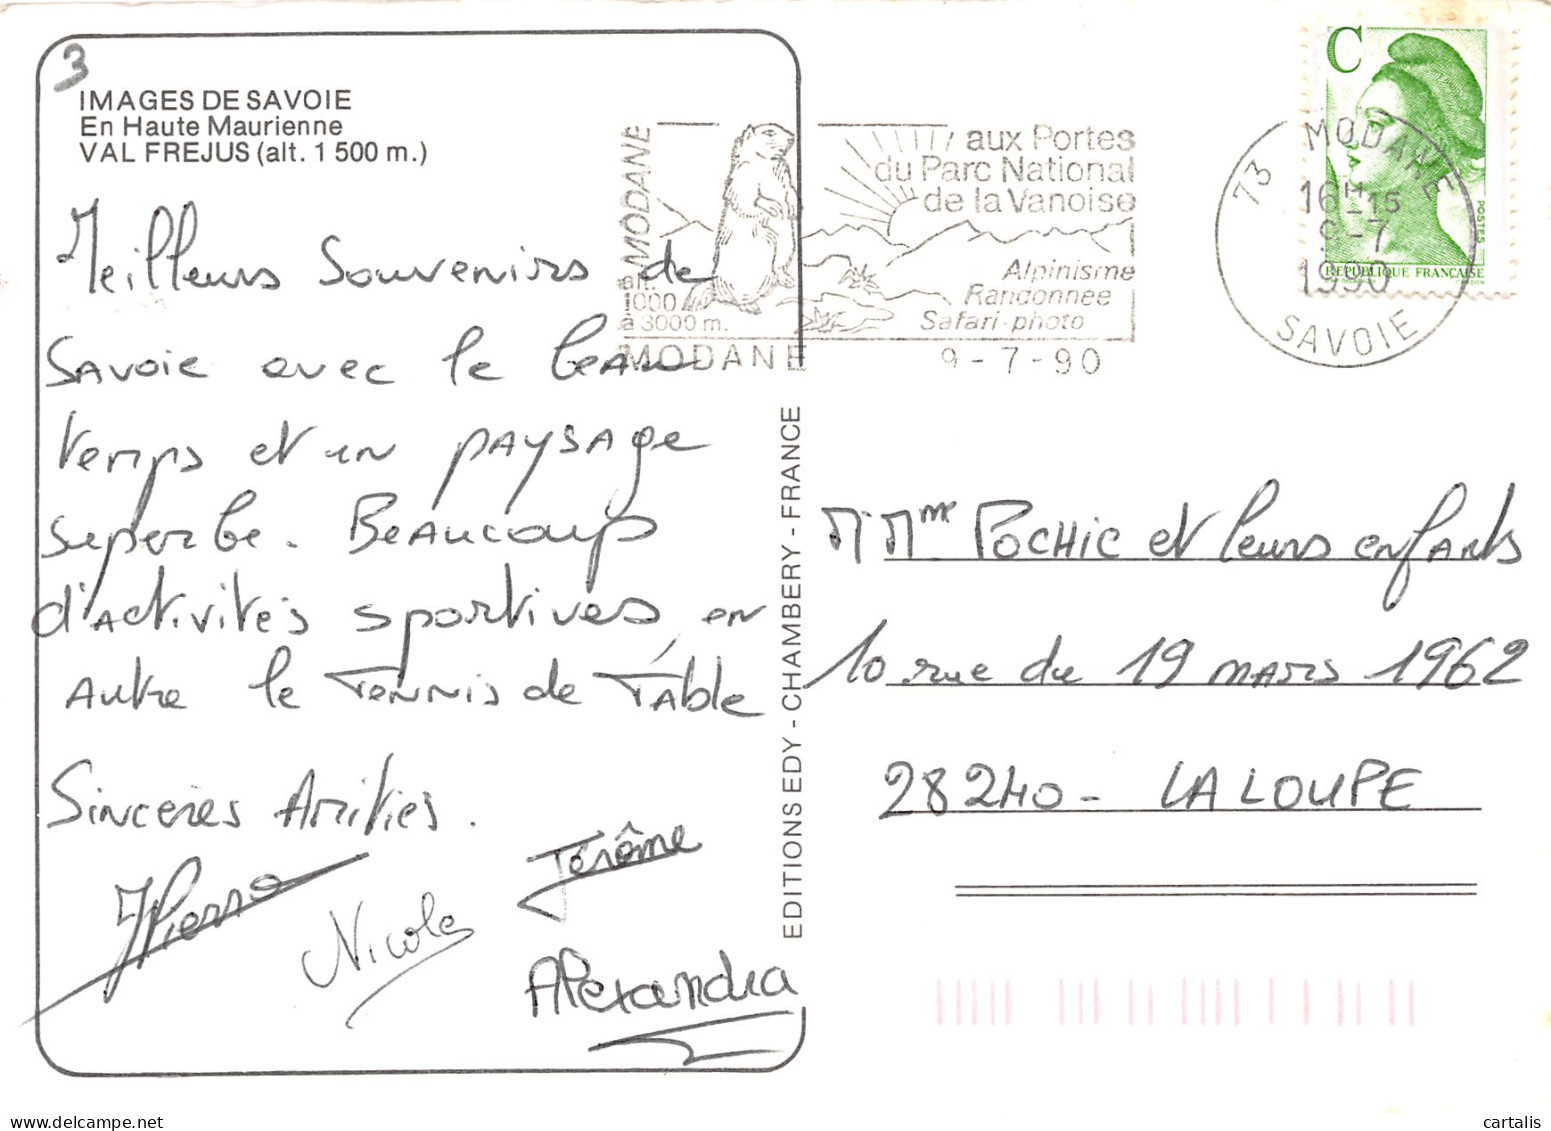 3
IMAGES DE SAVOIE
En Haute Maurienne
VAL FREJUS (alt. 1 500 m.)
Meilleurs Souvenirs de
Savoie avec le beau
temps et un paysage
superbe. Beaucoup
d'activités sportives, en
autre le Tennis de Table
Sincères Amitiés.
JPierre
Nicole
Jérôme
Alexandra
MODANE
alt.
1000
à 3000 m.
aux Portes
du Parc National
de la Vanoise
Alpinisme
Randonnee
Safari-photo
MODANE 9-7-90
C
POSTES
REPUBLIQUE FRANÇAISE
73 MODANE
16H-15
9-7
1990
SAVOIE
EDITIONS EDY - CHAMBERY - FRANCE
M Mme POCHIC et leurs enfants
10 rue du 19 mars 1962
28240 - LA LOUPE
cartalis delcampe.net